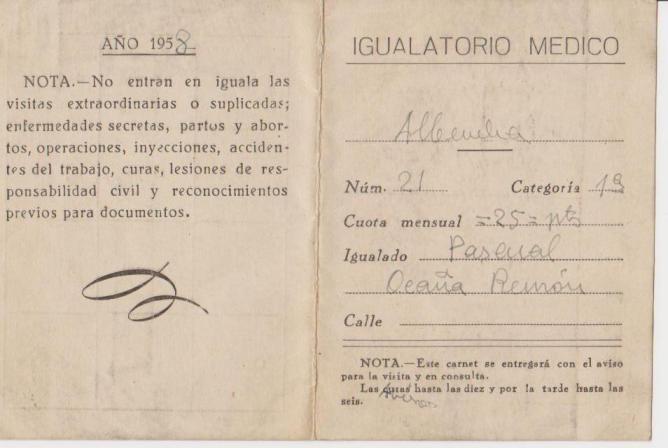 AÑO 1958
NOTA.—No entran en iguala las
visitas extraordinarias o suplicadas;
enfermedades secretas, partos y abor-
tos, operaciones, inyecciones, acciden-
tes del trabajo, curas, lesiones de res-
ponsabilidad civil y reconocimientos
previos para documentos.
IGUALATORIO MEDICO
Núm. 21 Categoría 1ª
Cuota mensual =25= pts
Igualado Pascual
Ocaña Remón
Calle
NOTA.—Este carnet se entregará con el aviso
para la visita y en consulta.
Las hasta las diez y por la tarde hasta las
seis.